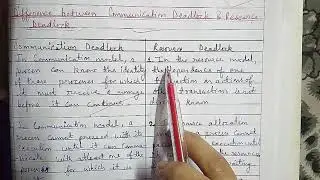 Difference between Communication Deadlock & Resource
Deadlock
Communication Deadlock
Resource Deadlock
In Communication model, a
process can know the identity
of those processes for which
it must receive a message
before it can continue.
1. In the resource model,
the dependence of one
transaction on actions of
transaction is not
known
In Communication model, a
process cannot proceed with
execution until it can Commu-
nicate with atleast one of the
processes for which it is
resource allocation
a process cannot
with
execution until it
the resources
for which